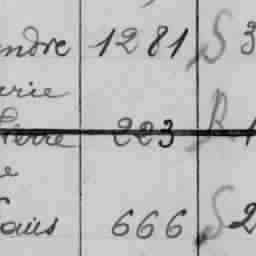 ndre 1281 S 3
rie
Pierre 223 R 1
e
ais 666 S 2